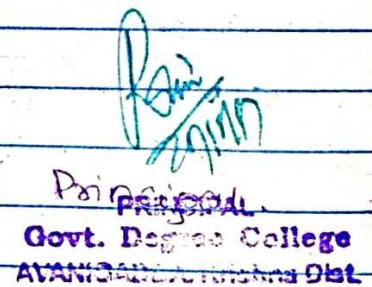 Principal.
PRINCIPAL
Govt. Degree College
AVANIGADDA, Krishna Dist